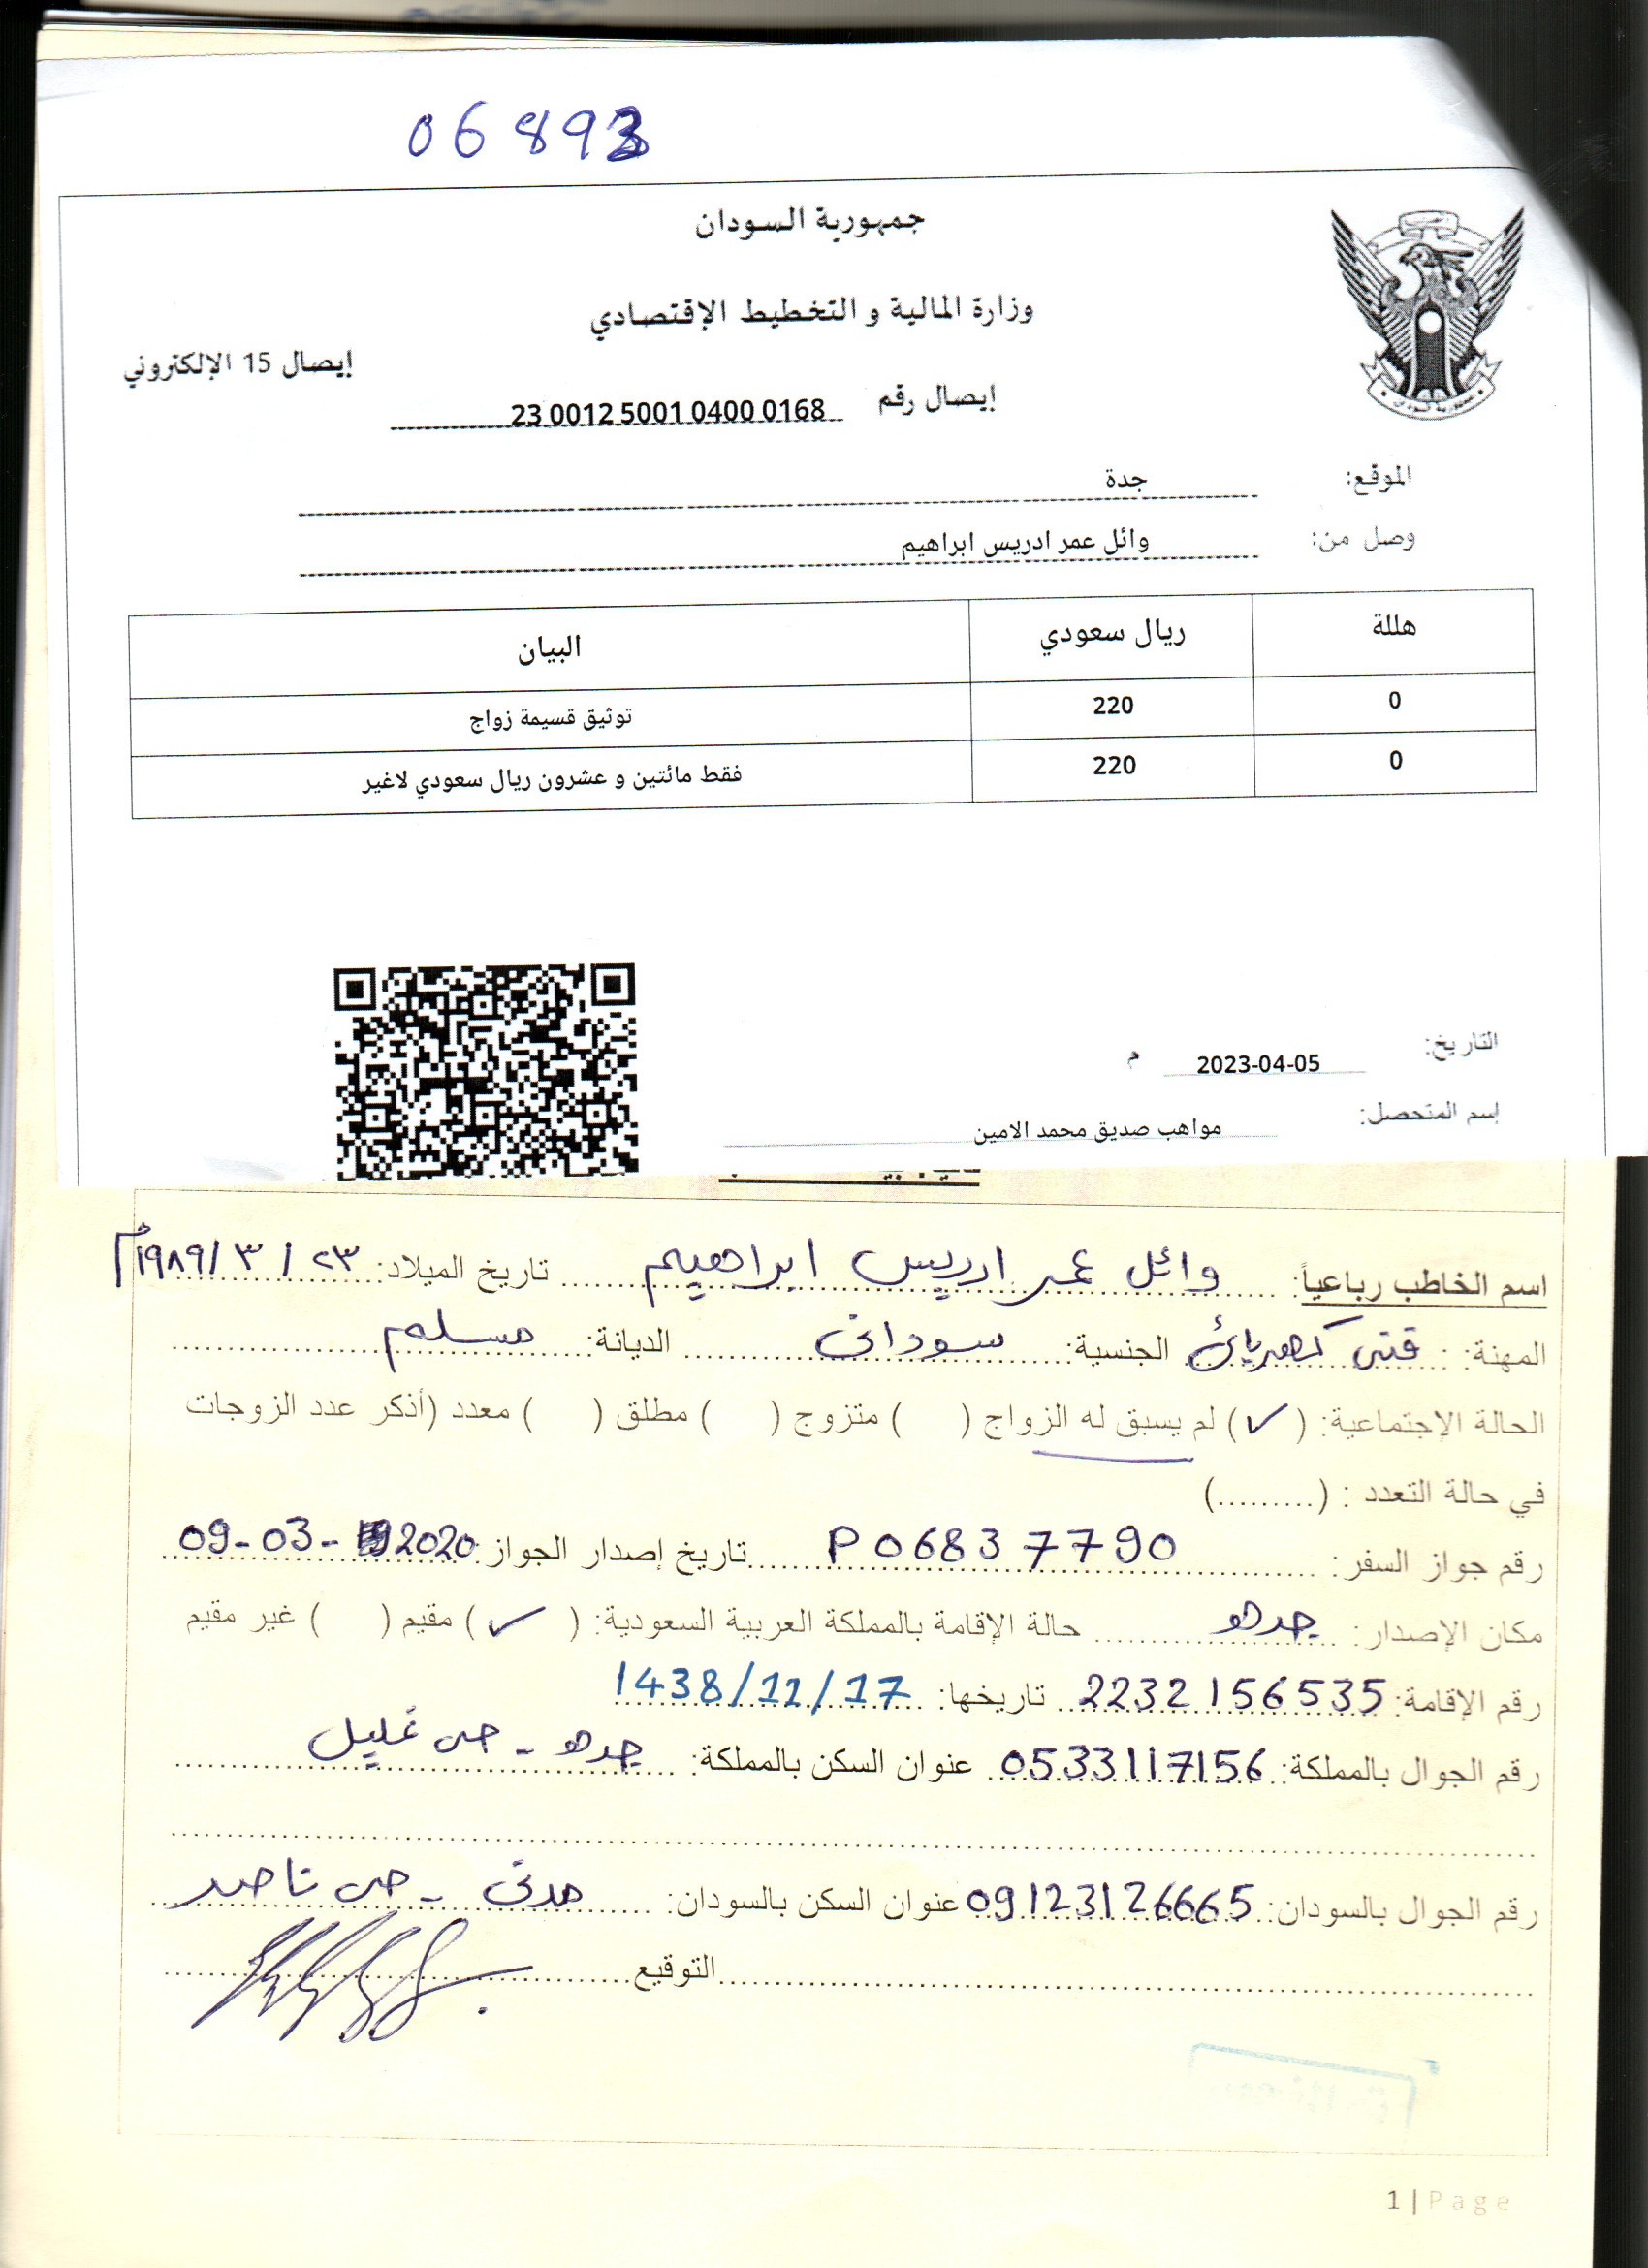 06893
جمهورية السودان
وزارة المالية و التخطيط الإقتصادي
إيصال 15 الإلكتروني
إيصال رقم 23 0012 5001 0400 0168
الموقع: جدة
وصل من: وائل عمر ادريس ابراهيم
هللة ريال سعودي البيان
0 220 توثيق قسيمة زواج
0 220 فقط مائتين و عشرون ريال سعودي لاغير
التاريخ: 2023-04-05 م
إسم المتحصل: مواهب صديق محمد الامين
اسم الخاطب رباعياً: وائل عمر ادريس ابراهيم تاريخ الميلاد: ٢٣ / ٣ / ١٩٨٩م
المهنة: : فنى كهربائى الجنسية: سودانى الديانة: مسلم
الحالة الإجتماعية: (✓) لم يسبق له الزواج ( ) متزوج ( ) مطلق ( ) معدد (أذكر عدد الزوجات
في حالة التعدد : (.........)
رقم جواز السفر: P06837790 تاريخ إصدار الجواز: 09-03-2020
مكان الإصدار: جده حالة الإقامة بالمملكة العربية السعودية: (✓) مقيم ( ) غير مقيم
رقم الإقامة: 2232156535 تاريخها: 1438/11/17
رقم الجوال بالمملكة: 0533117156 عنوان السكن بالمملكة: جده - حى غليل
رقم الجوال بالسودان: 09123126665 عنوان السكن بالسودان: مدنى - حى ناصر
التوقيع
1 | Page